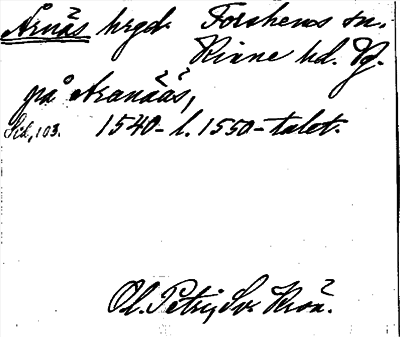 Årnäs hrgd. Forshems sn.
Kinne hd. Vg.
på Aranääs,
Sid, 103. 1540- l. 1550-talet.
Ol. Petri, Sv. Krön.